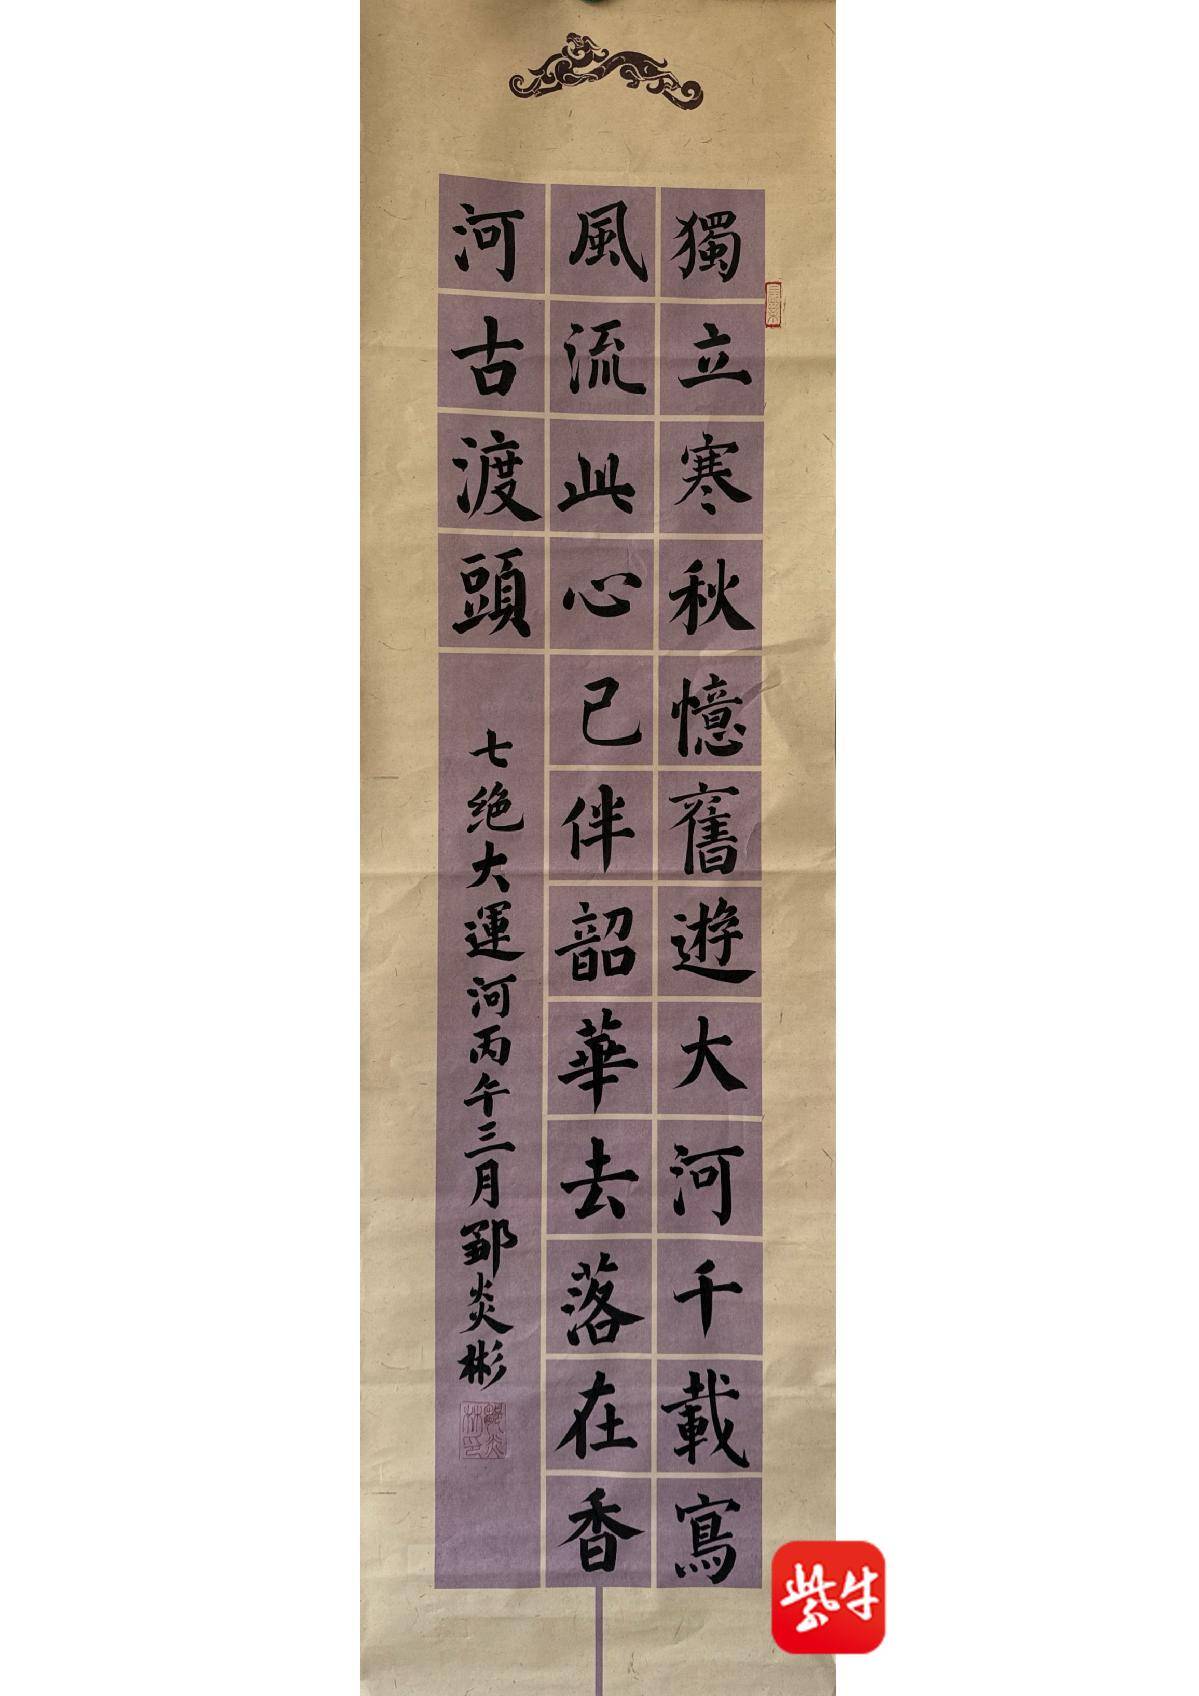 獨立寒秋憶舊遊大河千載寫
風流此心已伴韶華去落在香
河古渡頭
七绝大運河丙午三月鄒炎彬
紫牛